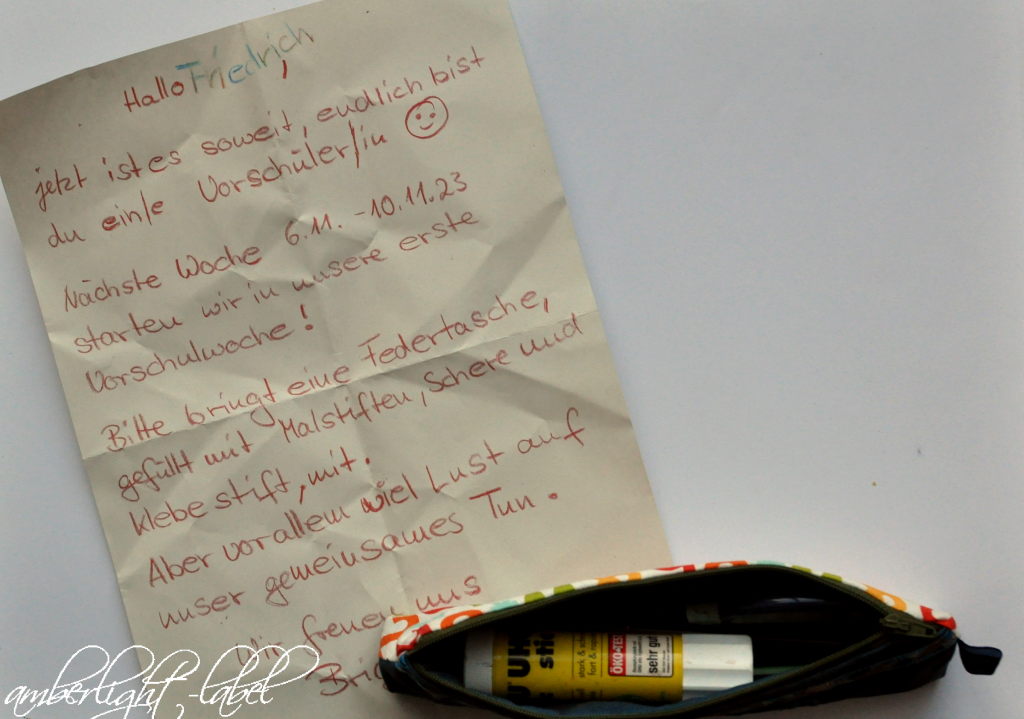 Hallo Friedrich,
jetzt ist es soweit, endlich bist
du ein/e Vorschüler/in
Nächste Woche 6.11. - 10.11.23
starten wir in unsere erste
Vorschulwoche!
Bitte bringt eine Federtasche,
gefüllt mit Malstiften, Schere und
Klebestift, mit.
Aber vor allem viel Lust auf
unser gemeinsames Tun.
Wir freuen uns
UHU
ÖKO-TEST
sehr gut
amberlight-label